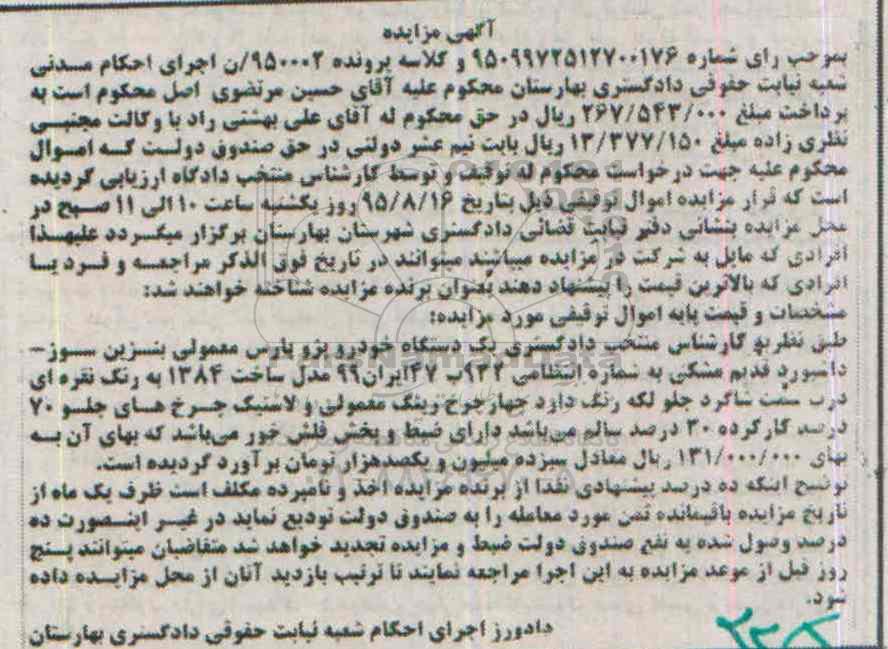 آگهی مزایده
بموجب رای شماره ۹۵۰۹۹۷۲۵۱۲۷۰۰۱۷۶ و کلاسه پرونده ۹۵۰۰۰۲/ن اجرای احکام مدنی
شعبه نیابت حقوقی دادگستری بهارستان محکوم علیه آقای حسین مرتضوی اصل محکوم است به
پرداخت مبلغ ۲۶۷/۵۴۳/۰۰۰ ریال در حق محکوم له آقای علی بهشتی راد با وکالت مجتبی
نظری زاده مبلغ ۱۳/۳۷۷/۱۵۰ ریال بابت نیم عشر دولتی در حق صندوق دولت که اموال
محکوم علیه جهت درخواست محکوم له توقیف و توسط کارشناس منتخب دادگاه ارزیابی گردیده
است که قرار مزایده اموال توقیفی ذیل بتاریخ ۹۵/۸/۱۶ روز یکشنبه ساعت ۱۰ الی ۱۱ صبح در
محل مزایده بنشانی دفتر نیابت قضائی دادگستری شهرستان بهارستان برگزار میگردد علیهذا
افرادی که مایل به شرکت در مزایده میباشند میتوانند در تاریخ فوق الذکر مراجعه و فرد یا
افرادی که بالاترین قیمت را پیشنهاد دهند بعنوان برنده مزایده شناخته خواهند شد:
مشخصات و قیمت پایه اموال توقیفی مورد مزایده:
طبق نظریه کارشناس منتخب دادگستری یک دستگاه خودرو پژو پارس معمولی بنزین سوز-
داشبورد قدیم مشکی به شماره انتظامی ۹۳۴ب ۴۷ایران۹۹ مدل ساخت ۱۳۸۴ به رنگ نقره ای
درب سمت شاگرد جلو لکه رنگ دارد چهارچرخ رینگ معمولی و لاستیک چرخ های جلو ۷۰
درصد کارکرده ۳۰ درصد سالم می‌باشد دارای ضبط و پخش فلش خور می‌باشد که بهای آن به
بهای ۱۳۱/۰۰۰/۰۰۰ ریال معادل سیزده میلیون و یکصدهزار تومان برآورد گردیده است.
توضیح اینکه ده درصد پیشنهادی نقدا از برنده مزایده اخذ و نامبرده مکلف است ظرف یک ماه از
تاریخ مزایده باقیمانده ثمن مورد معامله را به صندوق دولت تودیع نماید در غیر اینصورت ده
درصد وصول شده به نفع صندوق دولت ضبط و مزایده تجدید خواهد شد متقاضیان میتوانند پنج
روز قبل از موعد مزایده به این اجرا مراجعه نمایند تا ترتیب بازدید آنان از محل مزایده داده
شود.
دادورز اجرای احکام شعبه نیابت حقوقی دادگستری بهارستان